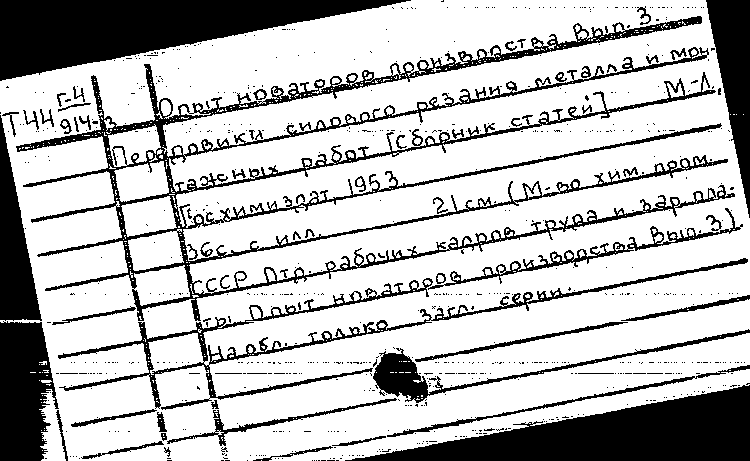 Опыт новаторов производства Вып. 3.
Т44 Г-4
914-3
Передовики силового резания металла и мон-
тажных работ [Сборник статей] М-Л,
Госхимиздат, 1953.
36с. с илл. 21см. (М-во хим. пром.
СССР Отд. рабочих кадров, труда и зар. пла-
ты. Опыт новаторов производства. Вып. 3).
На обл. только загл. серии.